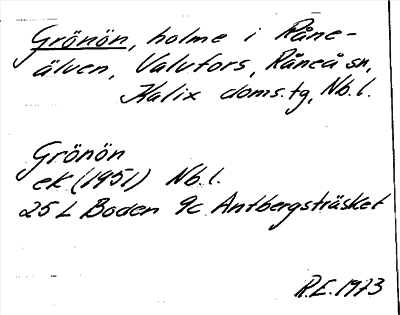 Grönön, holme i Råne-
älven, Valvfors, Råneå sn,
Kalix doms.tg, Nb.l.
Grönön
ek (1951) Nb.l.
25 L Boden 9c Antbergsträsket
R.E. 1973